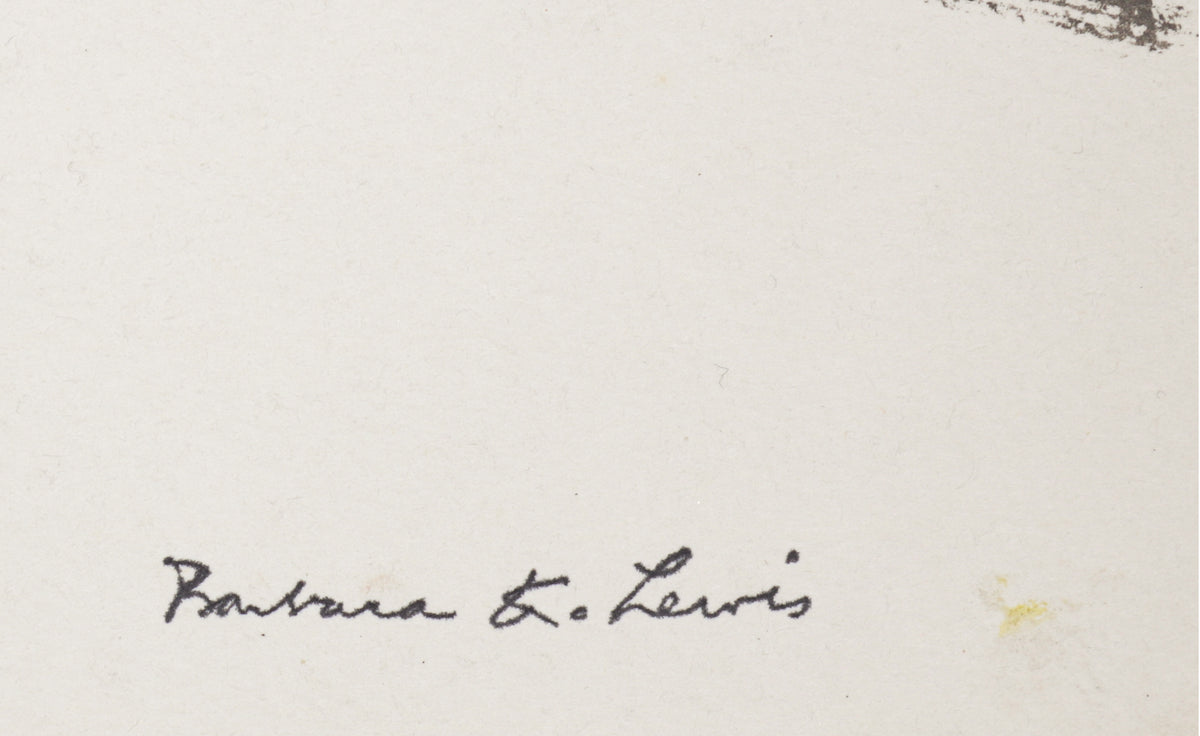 Barbara K. Lewis